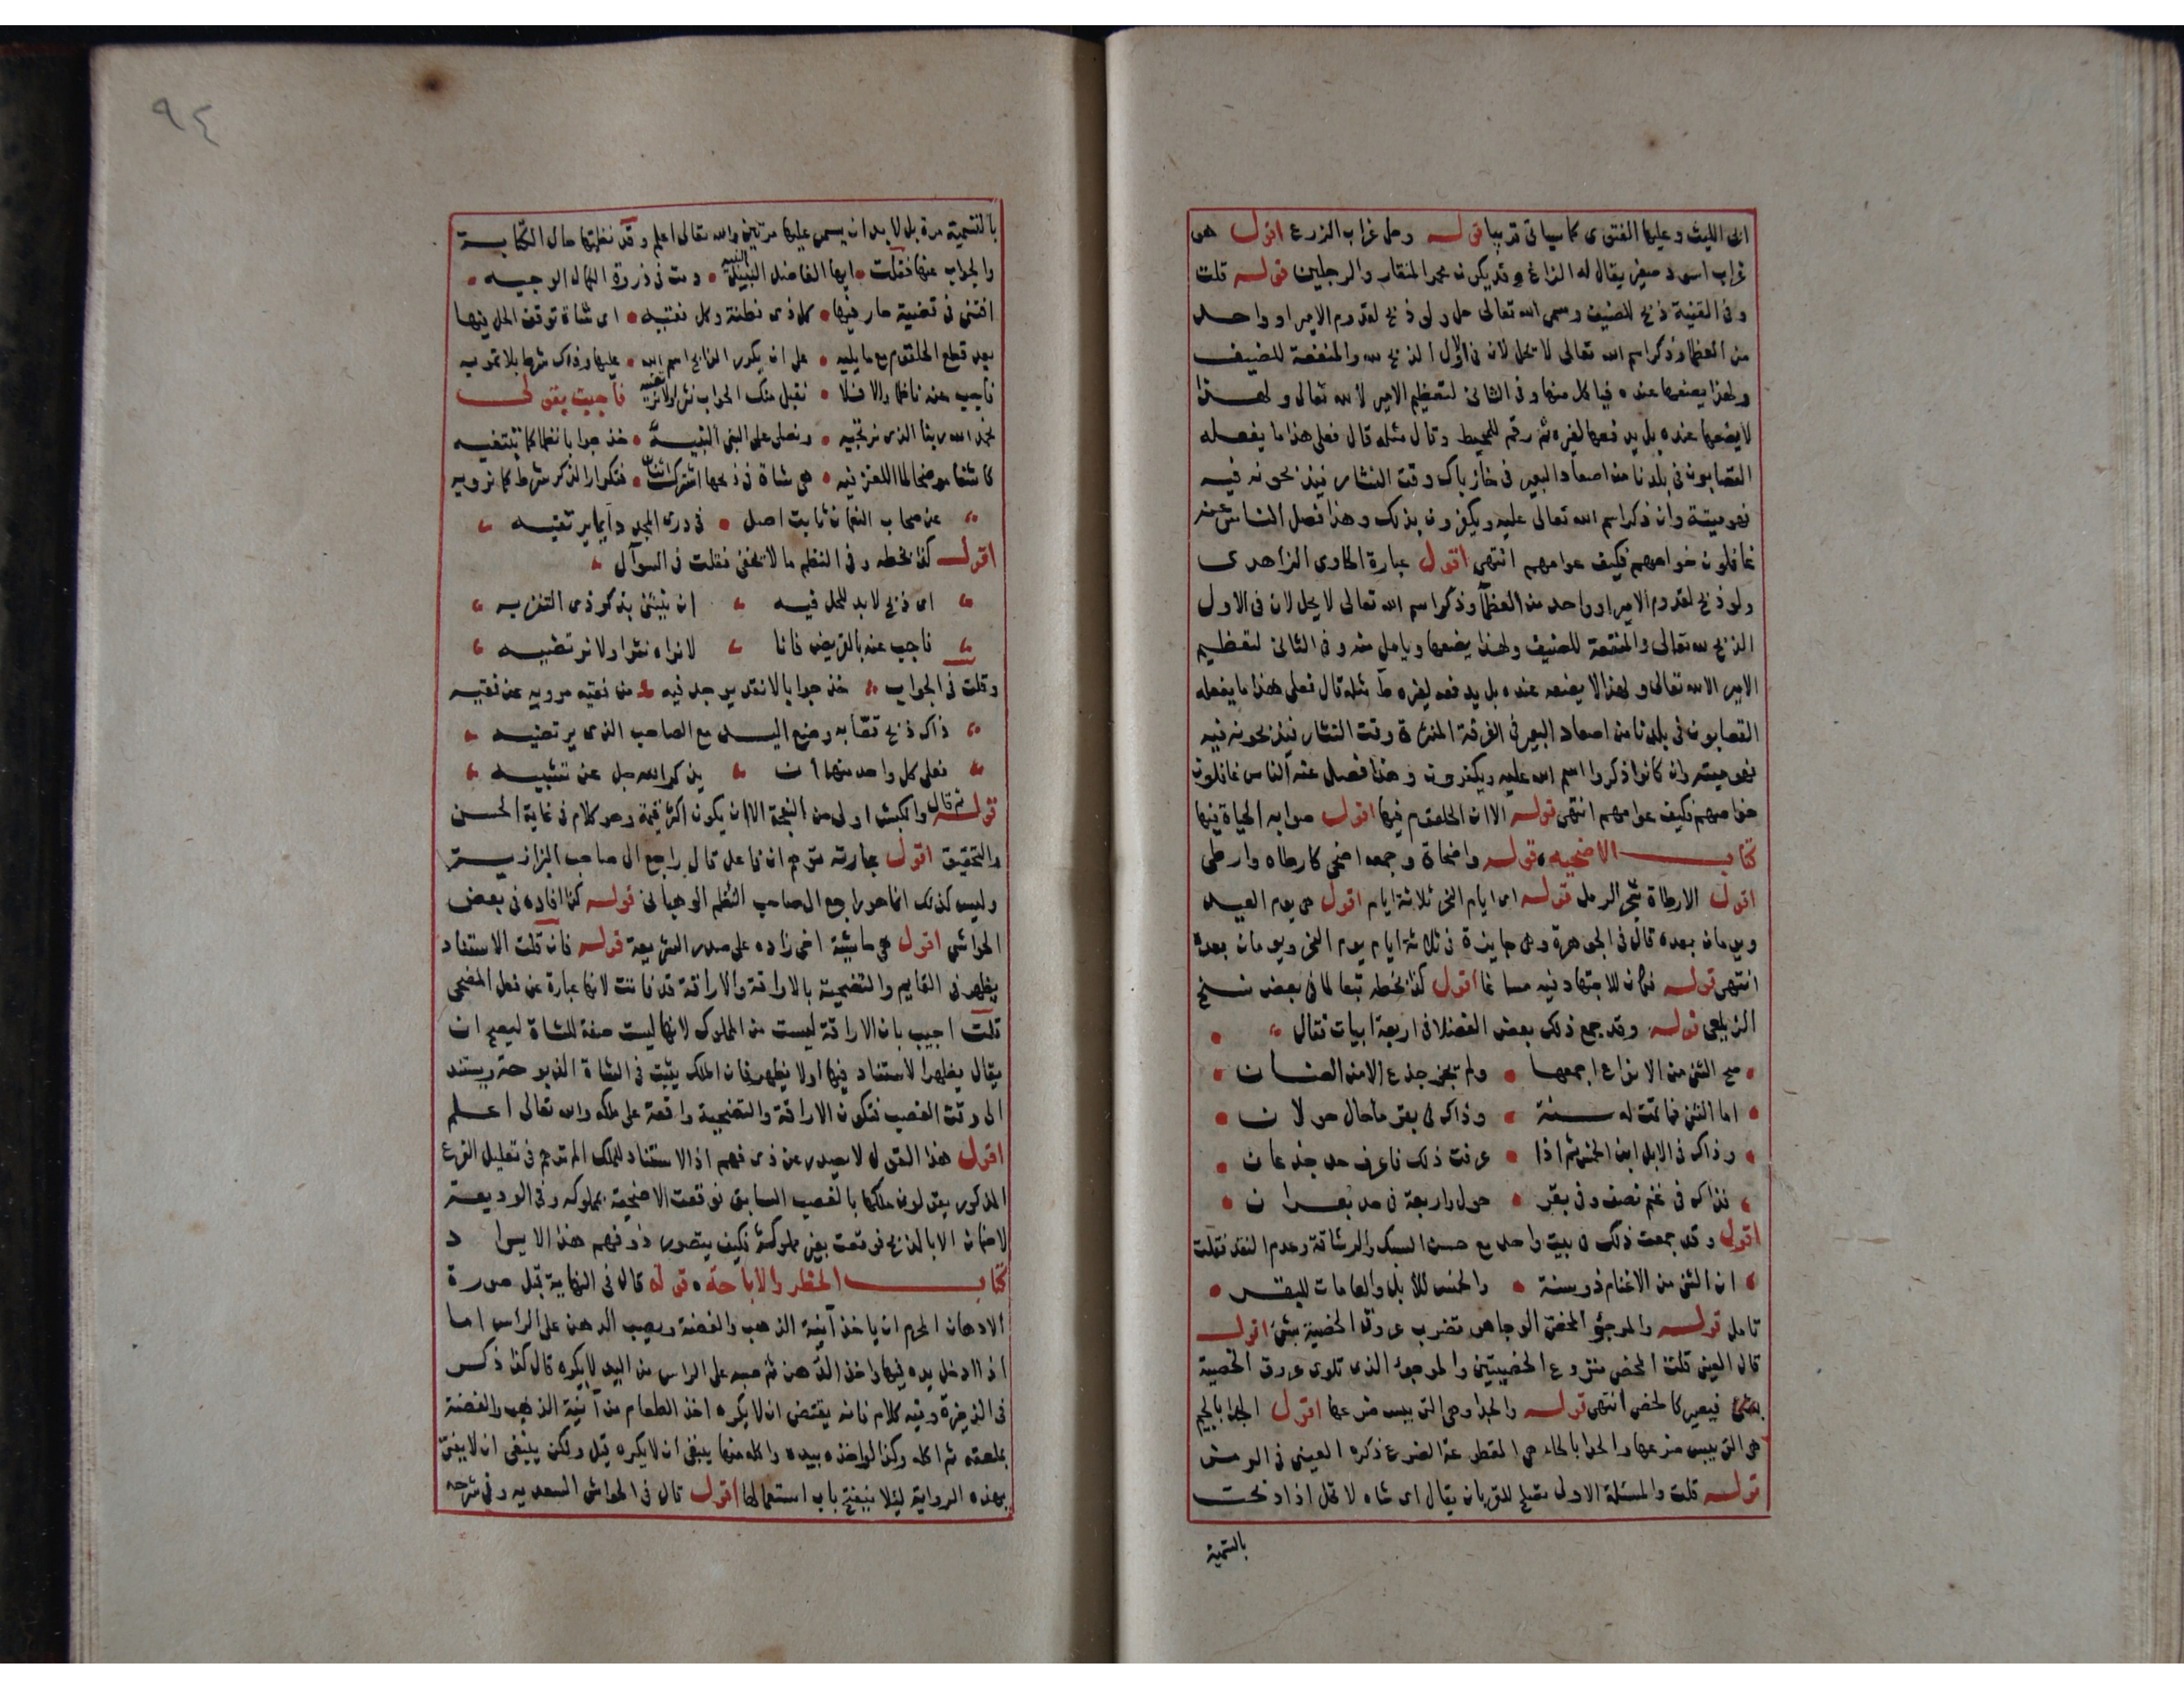 ابى الليث وعليها الفتوى كما سياتى قريبا قوله وحل غراب الزرع اقول هو
غراب اسود صغير يقال له الزاغ وقد يكون محمر المنقار والرجلين قوله قلت
وفى القنية ذبح للضيف وسمى الله تعالى حل ولو ذبح لقدوم الامير او واحد
من العظما وذكر اسم الله تعالى لا تحل لان فى الاول الذبح لله والمنفعة للضيف
ولهذا يضعها عنده فياكل منها وفى الثانى لتعظيم الامير لا لله تعالى ولهذا
لا يضعها عنده بل يدفعها لغيره ثم رقم للمحيط وقال مثله قال فعلى هذا ما يفعله
القصابون فى بلدنا من اصعاد البعير فى وقت النثار فيذبحونه فيه
فهو ميتة وان ذكر اسم الله تعالى عليه ويكفرون بذلك وهذا فصل الناس عنه
غافلون خواصهم فكيف عوامهم انتهى اقول عبارة الحاوى الزاهدى
ولو ذبح لقدوم الامير او واحد من العظما وذكر اسم الله تعالى لا يحل لان فى الاول
الذبح لله تعالى والمنفعة للضيف ولهذا يضعها وياكل منه وفى الثانى لتعظيم
الامير لا لله تعالى ولهذا لا يضعه عنده بل يدفعه لغيره ط مثله قال فعلى هذا ما يفعله
القصابون فى بلدنا من اصعاد البعير فى الغرفة وقت النثار فيذبحونه فيه
فهو ميتة وان كانوا ذكروا اسم الله عليه ويكفرون وهذا فصل عنه الناس غافلون
خواصهم فكيف عوامهم انتهى قوله الا ان الحلقوم فيها اقول صوابه الحياة فيها
كتاب الاضحيه قوله واضحاة وجمعه اضحى كارطاه وارطى
اقول الارطاة شجر الرمل قوله اى ايام النحر ثلاثة ايام اقول هى يوم العيد
ويومان بعده قال فى الجوهرة وهى جايزة فى ثلاثة ايام يوم النحر ويومان بعده
انتهى قوله فكان للاجتهاد فيه مساغا اقول كذا بخطه تبعا لما فى بعض نسخ
الزيلعى قوله وقد جمع ذلك بعض الفضلا فى اربعة ابيات فقال
صح الثنى من الانواع اجمعها ولم يجز جذع الا من الضان
اما الثنى فما تمت له سنة وذاك فى بقر ما حال حولان
وذاك فى الابل ابن الخمس ثم اذا عرفت ذلك فاعرف حد جذعان
فذاك فى غنم نصف وفى بقر حول واربعة فى حد بعران
اقول وقد جمعت ذلك فى بيت واحد مع حسن السبك والرشاقة وعدم النقد فقلت
ان الثنى من الاغنام ذو سنة والخمس للابل والعامات للبقر
تامل قوله والمرجؤ المخصى الوجا هو تضرب عروق الخصية بشئ اقول
قال العينى قلت الخصى منزوع الخصيتين والموجوء الذى تلوى عروق الخصية
بشئ فيصير كالخصى انتهى قوله والجدا وهى التى يبس ضرعها اقول الجدا بالجيم
هى التى يبس ضرعها والحدا بالحاء هى المقطوعة الضرع ذكره العينى فى الرمز
قوله قلت والمسئلة الاولى تصلح للقربان يقال اى شاه لا تحل اذا ذبحت
بالتسمية
٩٤
بالتسمية مرة بل لا بد ان يسمى عليها مرتين والله تعالى اعلم وقد نظمتها حال الكتابة
والجواب عنها فقلت ايها الفاضل النبيه دمت فى ذروة الكمال الوجيه
افتنى فى قضية حار فيها كل ذى فطنة وكل فقيه اى شاة توقف الحل فيها
بعد قطع الحلقوم مع ما يليه على ان يكرر الذابح اسم الله عليها وذاك شرطا بلا تمويه
فاجب عنه ناظما والا فلا نقبل منك الجواب نثرا فاجبت بقولى
بحمد الله ربنا الذى نرتجيه ونصلى على النبى النبيه خذ جوابا نظما كما تبتغيه
كاشفا موضحا لما اللغز فيه هى شاة فى ذبحها اشترك اثنان فتكرار الذكر شرط كما نرويه
عن صحاب النعمان ثابت اصل فى ذرى المجد دايما يرتقيه
اقول كذا بخطه وفى النظم ما لا يخفى فقلت فى السوآل
اى ذبح لا بد للحل فيه ان يثنى بذكر ذى التنزيه
فاجب عنه بالقريض فانا لا نراه نثرا ولا نرتضيه
وقلت فى الجواب خذ جوابا لا نقد يوجد فيه من فقيه مرويه عن فقيه
ذاك ذبح قصابه وضع اليد مع الصاحب الذى يرتضيه
فعلى كل واحد منهما ان يذكر الله جل عن تشبيه
قوله ثم قال والكبش اولى من النعجة الا ان يكون اكثر قيمة وهو كلام فى غاية الحسن
والتحقيق اقول عبارته توهم ان فاعل قال راجع الى صاحب البزازية
وليس كذلك انما هو راجع الى صاحب النظم الوهبانى قوله كذا افاده فى بعض
الحواشى اقول هى حاشية اخى زاده على صدر الشريعة قوله فان قلت الاستناد
يظهر فى القايم والتضحية بالاراقة والاراقة قد فاتت لانها عبارة عن فعل المضحى
قلت اجيب بان الاراقة ليست من المملوك لانها ليست صفة للشاة ليصح ان
يقال يظهر الاستناد فيها او لا يظهر فان الملك يثبت فى الشاة المذبوحة ويستند
الى وقت الغصب فتكون الاراقة والتضحية واقعة على ملكه والله تعالى اعلم
اقول هذا القول لا يصدر عن ذى فهم اذ الاستناد للملك الم ترهم فى تعليل الفرع
المذكور يقولون ملكها بالغصب السابق فوقعت الاضحية بمملوكه وفى الوديعة
لا ضمان الا بالذبح فوقعت بغير مملوكه فكيف يتصور ذو فهم هذا الايراد
كتاب الحظر والاباحة قوله قال فى النهاية قيل صورة
الادهان المحرم ان ياخذ آنية الذهب والفضة ويصب الدهن على الراس اما
اذا ادخل يده فيها واخذ الدهن ثم صبه على الراس من اليد لا يكره قال كذا ذكر
فى الذخيرة وفيه كلام فانه يقتضى ان لا يكره اخذ الطعام من آنية الذهب والفضة
بملعقه ثم اكله وكذا لو اخذه بيده واكله منها ينبغى ان لا يكره قيل ولكن ينبغى ان لا يفتى
بهذه الرواية ليلا ينفتح باب استعمالها اقول قال فى الحواشى السعديه وفى شرحه